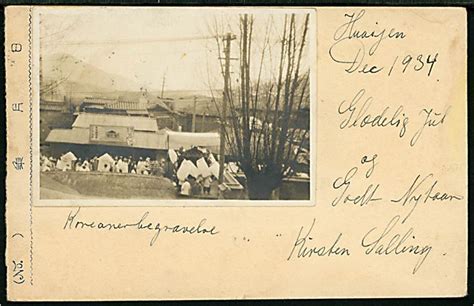 Huaijen
Dec 1934.
Glædelig Jul
og
Godt Nytaar
Kirsten Salling.
Koreanerbegravelse
日 月
(No. )